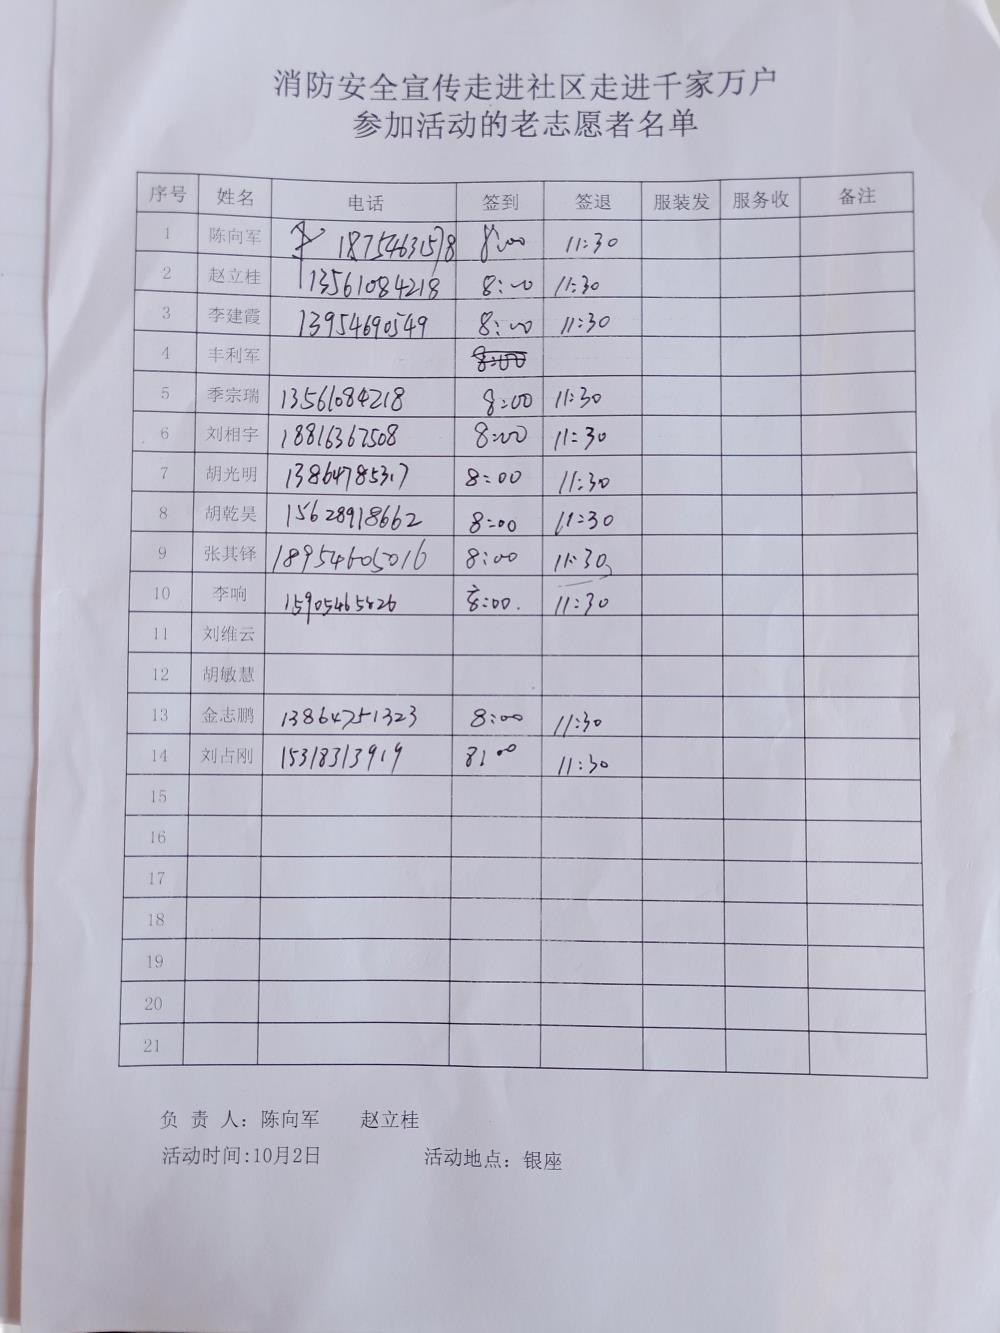 消防安全宣传走进社区走进千家万户
参加活动的老志愿者名单
序号 姓名 电话 签到 签退 服装发 服务收 备注
1 陈向军 18754631578 8:00 11:30
2 赵立桂 13561084218 8:00 11:30
3 李建霞 13954690549 8:00 11:30
4 丰利军 8:00
5 季宗瑞 13561084218 8:00 11:30
6 刘相宇 18816367508 8:00 11:30
7 胡光明 13864785317 8:00 11:30
8 胡乾昊 15628918662 8:00 11:30
9 张其铎 18954605016 8:00 11:30
10 李响 8:00. 11:30
11 刘维云
12 胡敏慧
13 金志鹏 13864751323 8:00 11:30
14 刘占刚 15318313919 8:00 11:30
15
16
17
18
19
20
21
负 责 人：陈向军 赵立桂
活动时间:10月2日 活动地点：银座